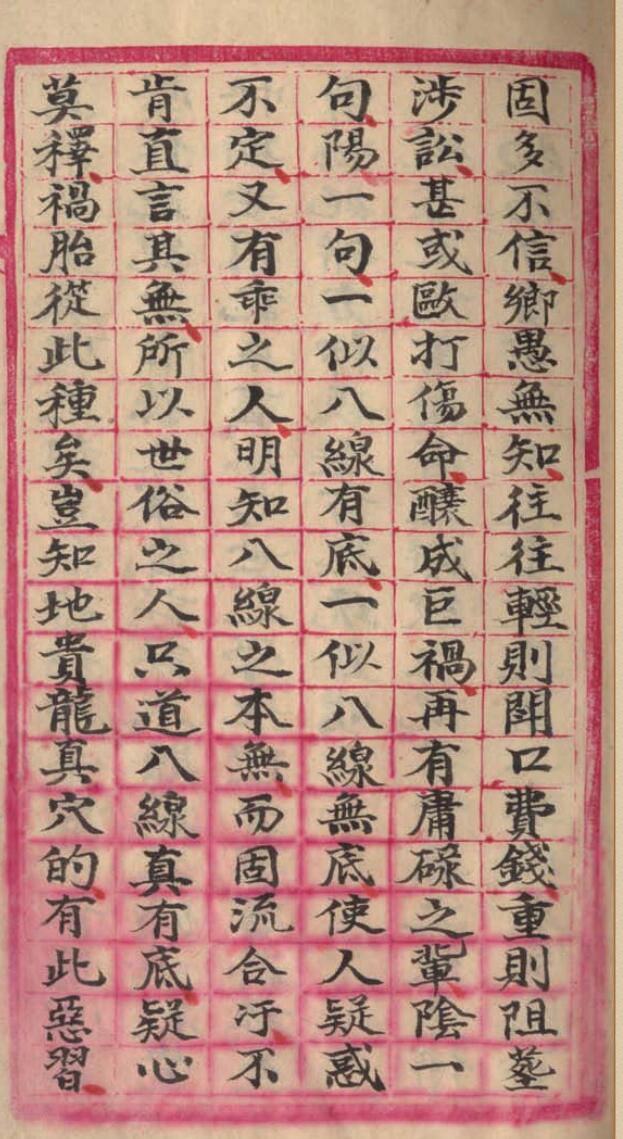 固多不信鄉愚無知往往輕則閗口費錢重則阻塟
涉訟甚或毆打傷命釀成巨禍再有庸碌之軰陰一
句陽一句一似八線有底一似八線無底使人疑惑
不定又有乖之人明知八線之本無而固流合汙不
肯直言其無所以世俗之人只道八線真有底疑心
莫釋禍胎從此種矣豈知地貴龍真穴的有此惡習